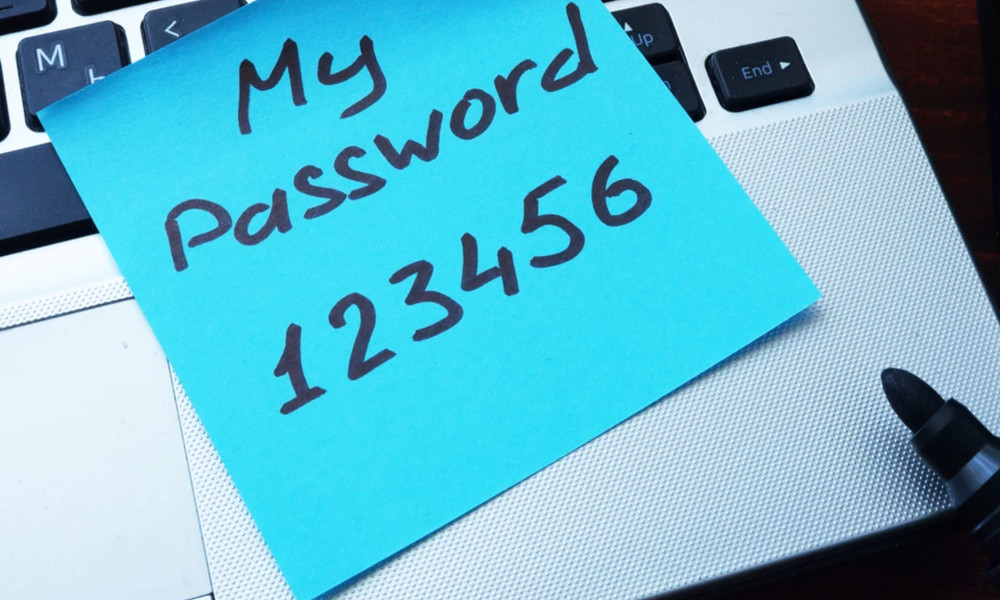 <
M
Ь
Up
End ▸
My
Password
123456